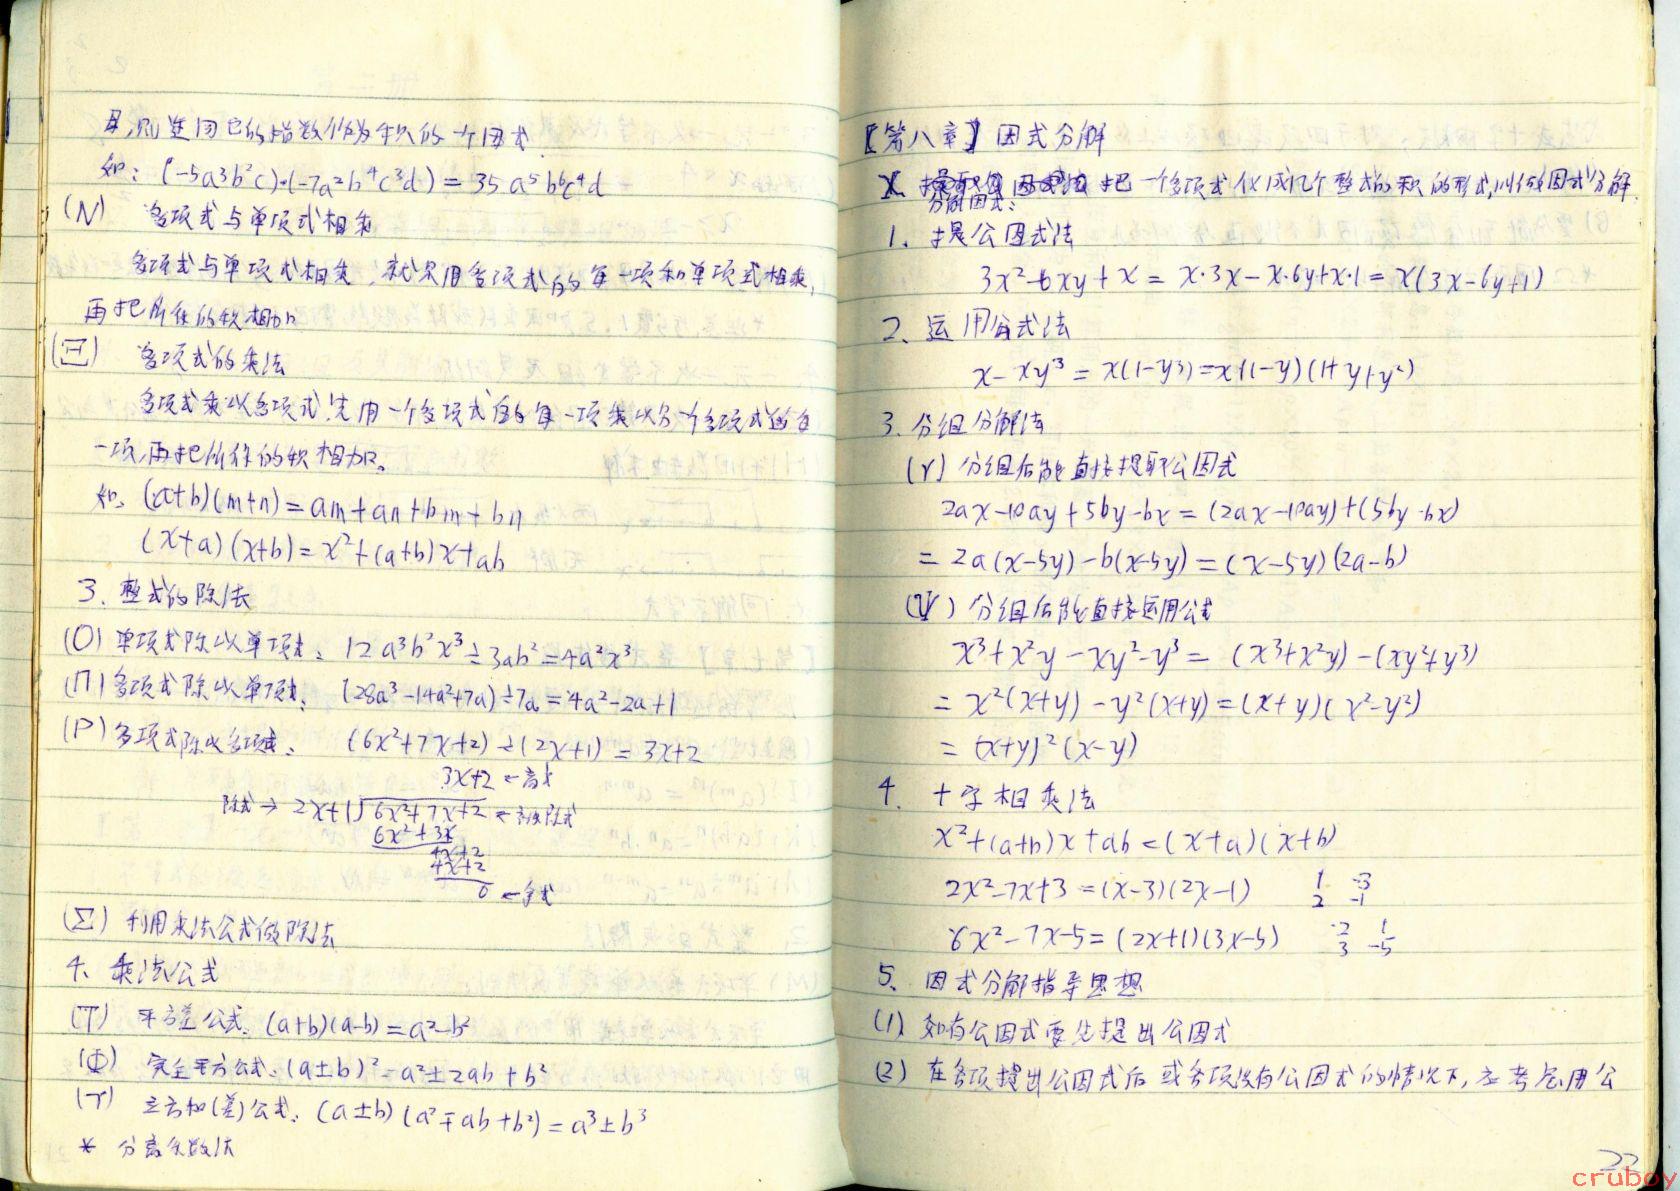 母,则连同它的指数作为积的一个因式.
如:(-5a³b²c)·(-7a²b⁴c³d)=35a⁵b⁶c⁴d
(N) 多项式与单项式相乘
多项式与单项式相乘,就是用多项式的每一项和单项式相乘,
再把所得的积相加
(Ξ) 多项式的乘法
多项式乘以多项式,先用一个多项式的每一项乘以另一个多项式的每
一项,再把所得的积相加。
如:(a+b)(m+n)=am+an+bm+bn
(x+a)(x+b)=x²+(a+b)x+ab
3、整式的除法
(O) 单项式除以单项式:12a³b²x³÷3ab²=4a²x³
(Π) 多项式除以单项式:(28a³-14a²+7a)÷7a=4a²-2a+1
(P) 多项式除以多项式:(6x²+7x+2)÷(2x+1)=3x+2
3x+2 ←商式
除式→ 2x+1 6x²+7x+2 ←被除式
6x²+3x
4x+2
4x+2
0 ←余式
(Σ) 利用乘法公式做除法
4、乘法公式
(T) 平方差公式:(a+b)(a-b)=a²-b²
(Φ) 完全平方公式:(a±b)²=a²±2ab+b²
(Υ) 立方和(差)公式:(a±b)(a²∓ab+b²)=a³±b³
* 分离系数法
【第八章】因式分解
把一个多项式化成几个整式的积的形式,叫做因式分解.
分解因式:
1、提公因式法
3x²-6xy+x=x·3x-x·6y+x·1=x(3x-6y+1)
2、运用公式法
x-xy³=x(1-y³)=x(1-y)(1+y+y²)
3、分组分解法
(Υ) 分组后能直接提取公因式
2ax-10ay+5by-bx=(2ax-10ay)+(5by-bx)
=2a(x-5y)-b(x-5y)=(x-5y)(2a-b)
(Ψ) 分组后能直接运用公式
x³+x²y-xy²-y³=(x³+x²y)-(xy²+y³)
=x²(x+y)-y²(x+y)=(x+y)(x²-y²)
=(x+y)²(x-y)
4、十字相乘法
x²+(a+b)x+ab=(x+a)(x+b)
2x²-7x+3=(x-3)(2x-1) 1 -3
2 -1
6x²-7x-5=(2x+1)(3x-5) 2 1
3 -5
5、因式分解指导思想
(1) 如有公因式要先提出公因式
(2) 在各项提出公因式后或各项没有公因式的情况下,应考虑用公
23
cruboy